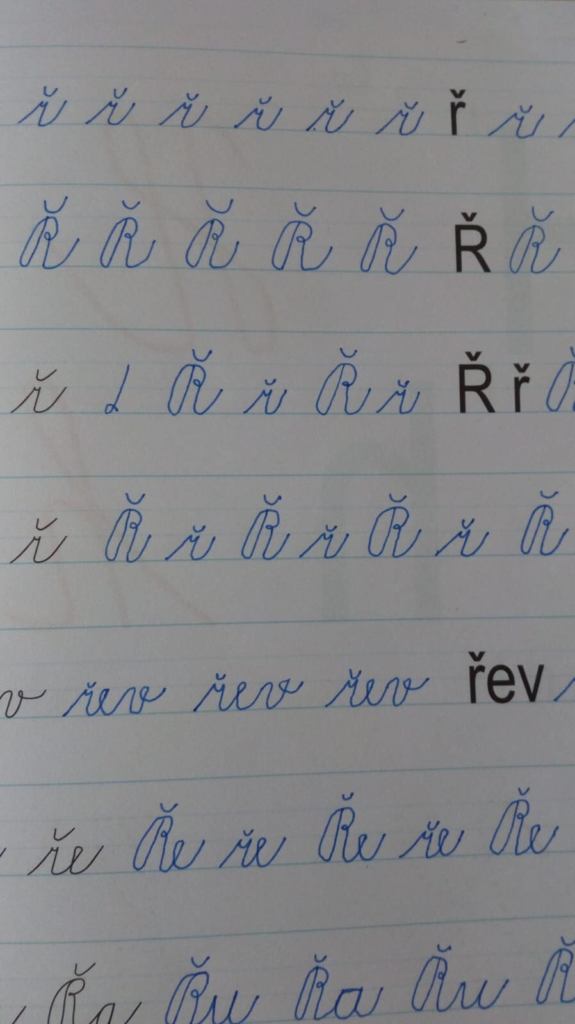 ř ř ř ř ř ř ř ř
Ř Ř Ř Ř Ř Ř Ř
ř Ř ř Ř ř Ř ř Ř
ř Ř ř Ř ř Ř ř Ř
řev řev řev řev
ře Ře ře Ře ře Ře
Řa Řu Řa Řu Ř